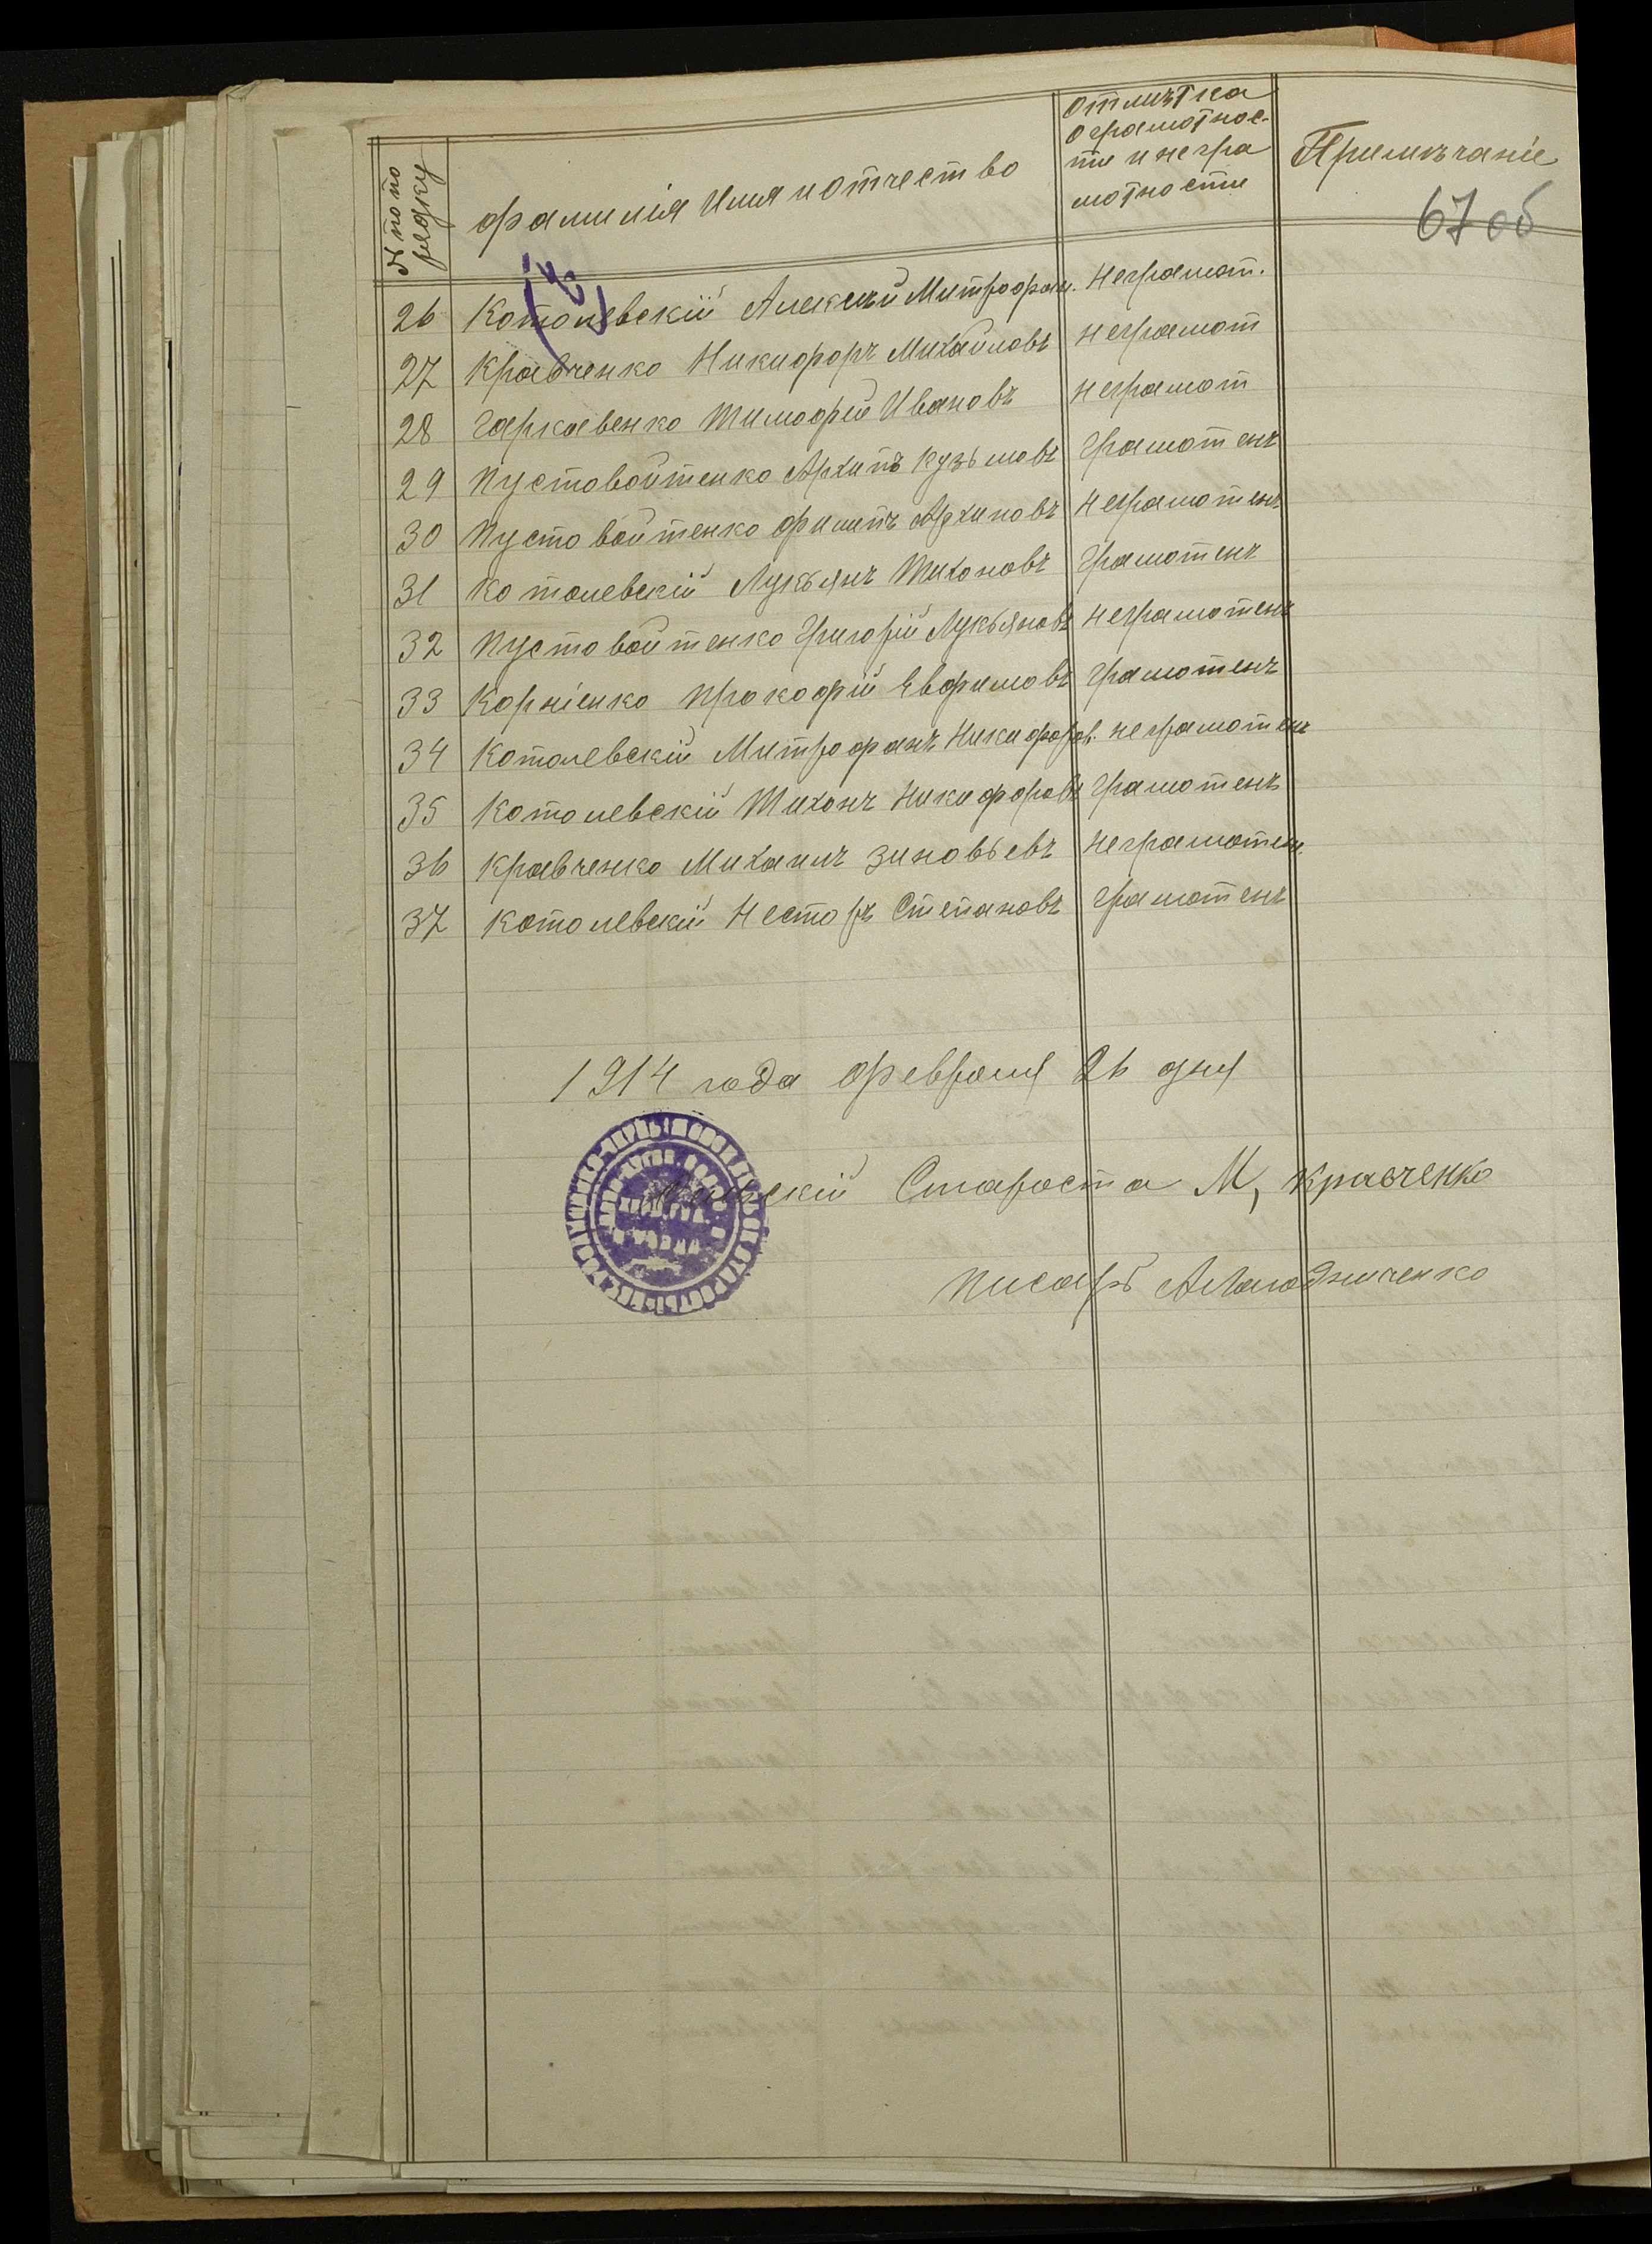 № по по
рядку
Фамилія Имя и Отчество
Отмѣтка
о грамотнос-
ти и негра
мотности
Примѣчаніе
67 об
26 Котолевскій Алексѣй Митрофан. неграмот.
27 Кравченко Никифоръ Михайловъ неграмот
28 Гаркавенко Тимофей Ивановъ неграмот
29 Пустовойтенко Архипъ Кузьмовъ грамотенъ
30 Пустовойтенко Филипъ Архиповъ неграмотенъ
31 Котолевскій Лукьянъ Тихоновъ грамотенъ
32 Пустовойтенко Григорій Лукьяновъ неграмотенъ
33 Корніенко Прокофій Евфимовъ грамотенъ
34 Котолевскій Митрофанъ Никифоров. неграмотенъ
35 Котолевскій Тихонъ Никифоровъ грамотенъ
36 Кравченко Михаилъ Зиновьевъ неграмотен.
37 Котолевскій Несторъ Степановъ грамотенъ
1914 года Февраля 26 дня
Сельскій Староста М, Кравченко
Писарь